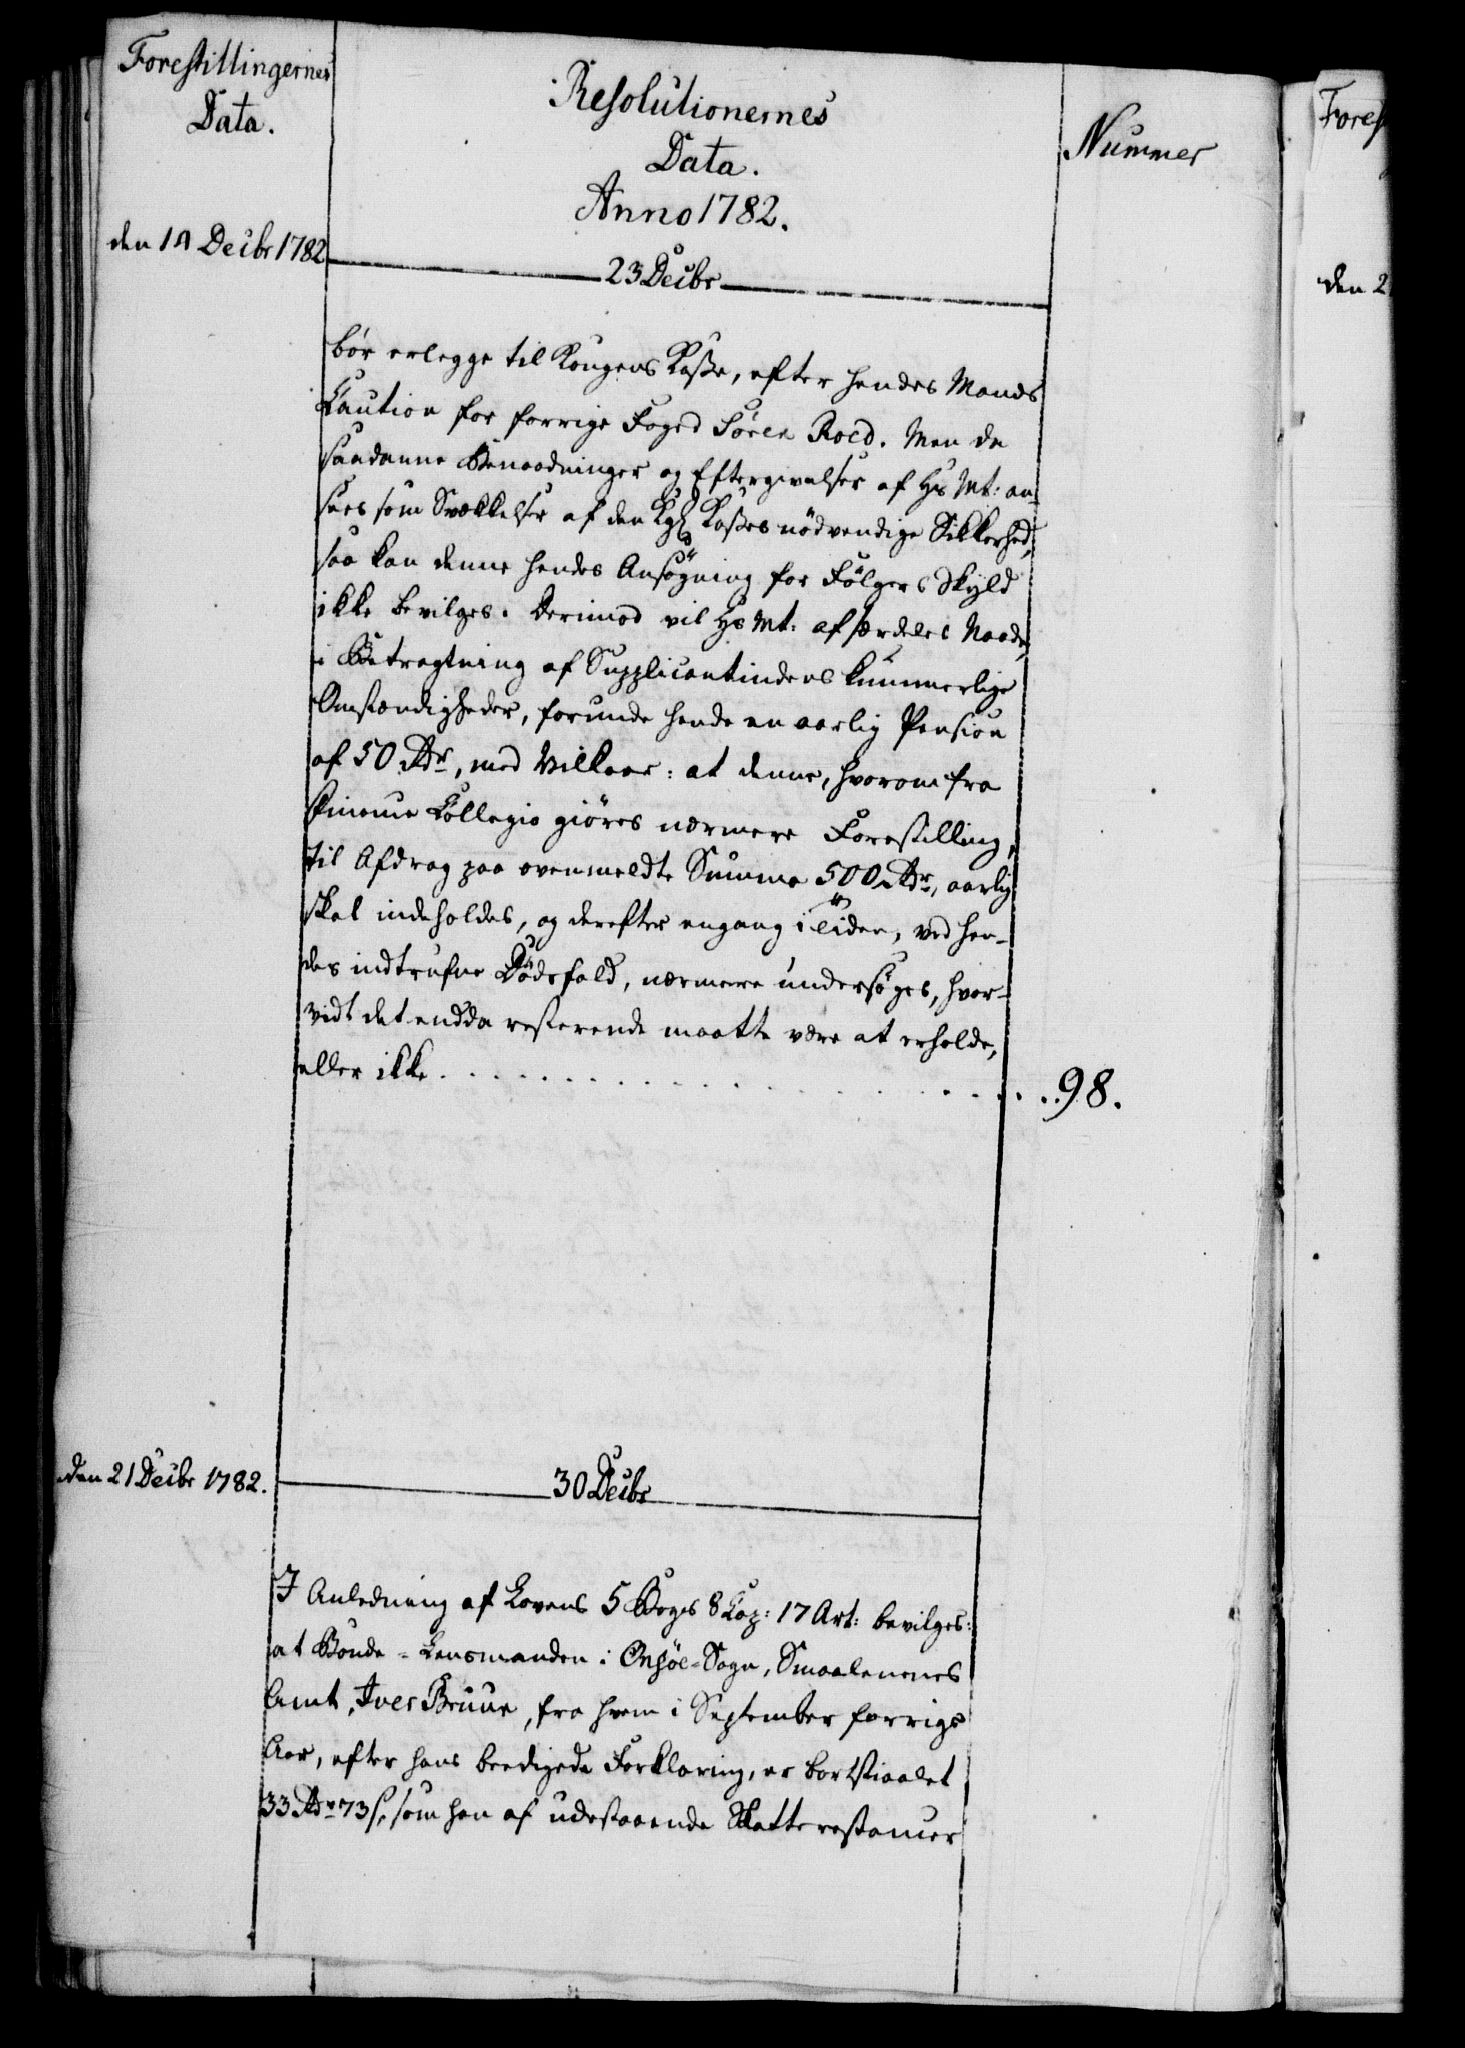 Forestillingernes
Data.
Resolutionernes
Data.
Nummer
Anno 1782.
den 14 Decibr 1782
23 Decibr
bør erlegge til Kongens Kasse, efter hendes Mands
Caution for forrige Foged Sören Roed. Men da
saadanne Benaadninger og Eftergivelser af Hs Mt: an-
sees som Svækkelser af den Kgl Kasses nödvendige Sikkerhed,
saa kan denne hendes Ansøgning for Fölgers Skyld
ikke bevilges. Derimod vil Hs Mt: af særdeles Naade,
i Betragtning af Supplicantindens kummerlige
Omstændigheder, forunde hende en aarlig Pension
af 50 Rdr, med Vilkaar: at denne, hvorom fra
Finance Collegio giöres nærmere Forestilling,
til Afdrag paa ovenmeldte Summa 500 Rdr, aarlig
skal indeholdes, og derefter engang i Tiden, ved hen-
des indtrufne Dödsfald, nærmere undersöges, hvor-
vidt det endda resterende maatte være at erholde,
eller ikke . . . . . . . . . . . . . . . . . 98.
den 21 Decibr 1782.
30 Decibr
I Anledning af Lovens 5 Bogs 8 Cap: 17 Art: bevilges:
at Bonde-Lensmanden i Onsöe-Sogn, Smaalenenes
Amt, Iver Bruun, fra hvem i September forrige
Aar, efter hans beedigede Forklaring, er bortstiaalet
33 Rdr 73 s, som han af udestaaende Skatterestancer
Fores
den 2